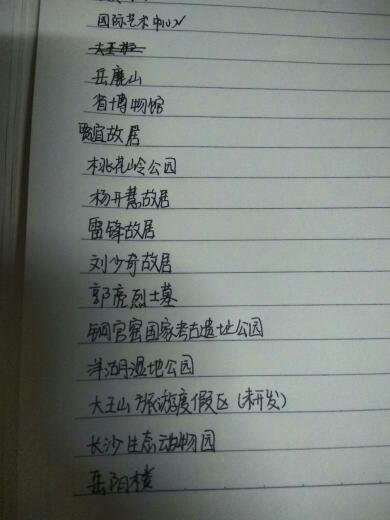 国际艺术中心
岳麓山
省博物馆
故居
桃花岭公园
杨开慧故居
雷锋故居
刘少奇故居
郭亮烈士墓
铜官窑国家考古遗址公园
洋湖湿地公园
大王山旅游度假区（未开发）
长沙生态动物园
岳阳楼